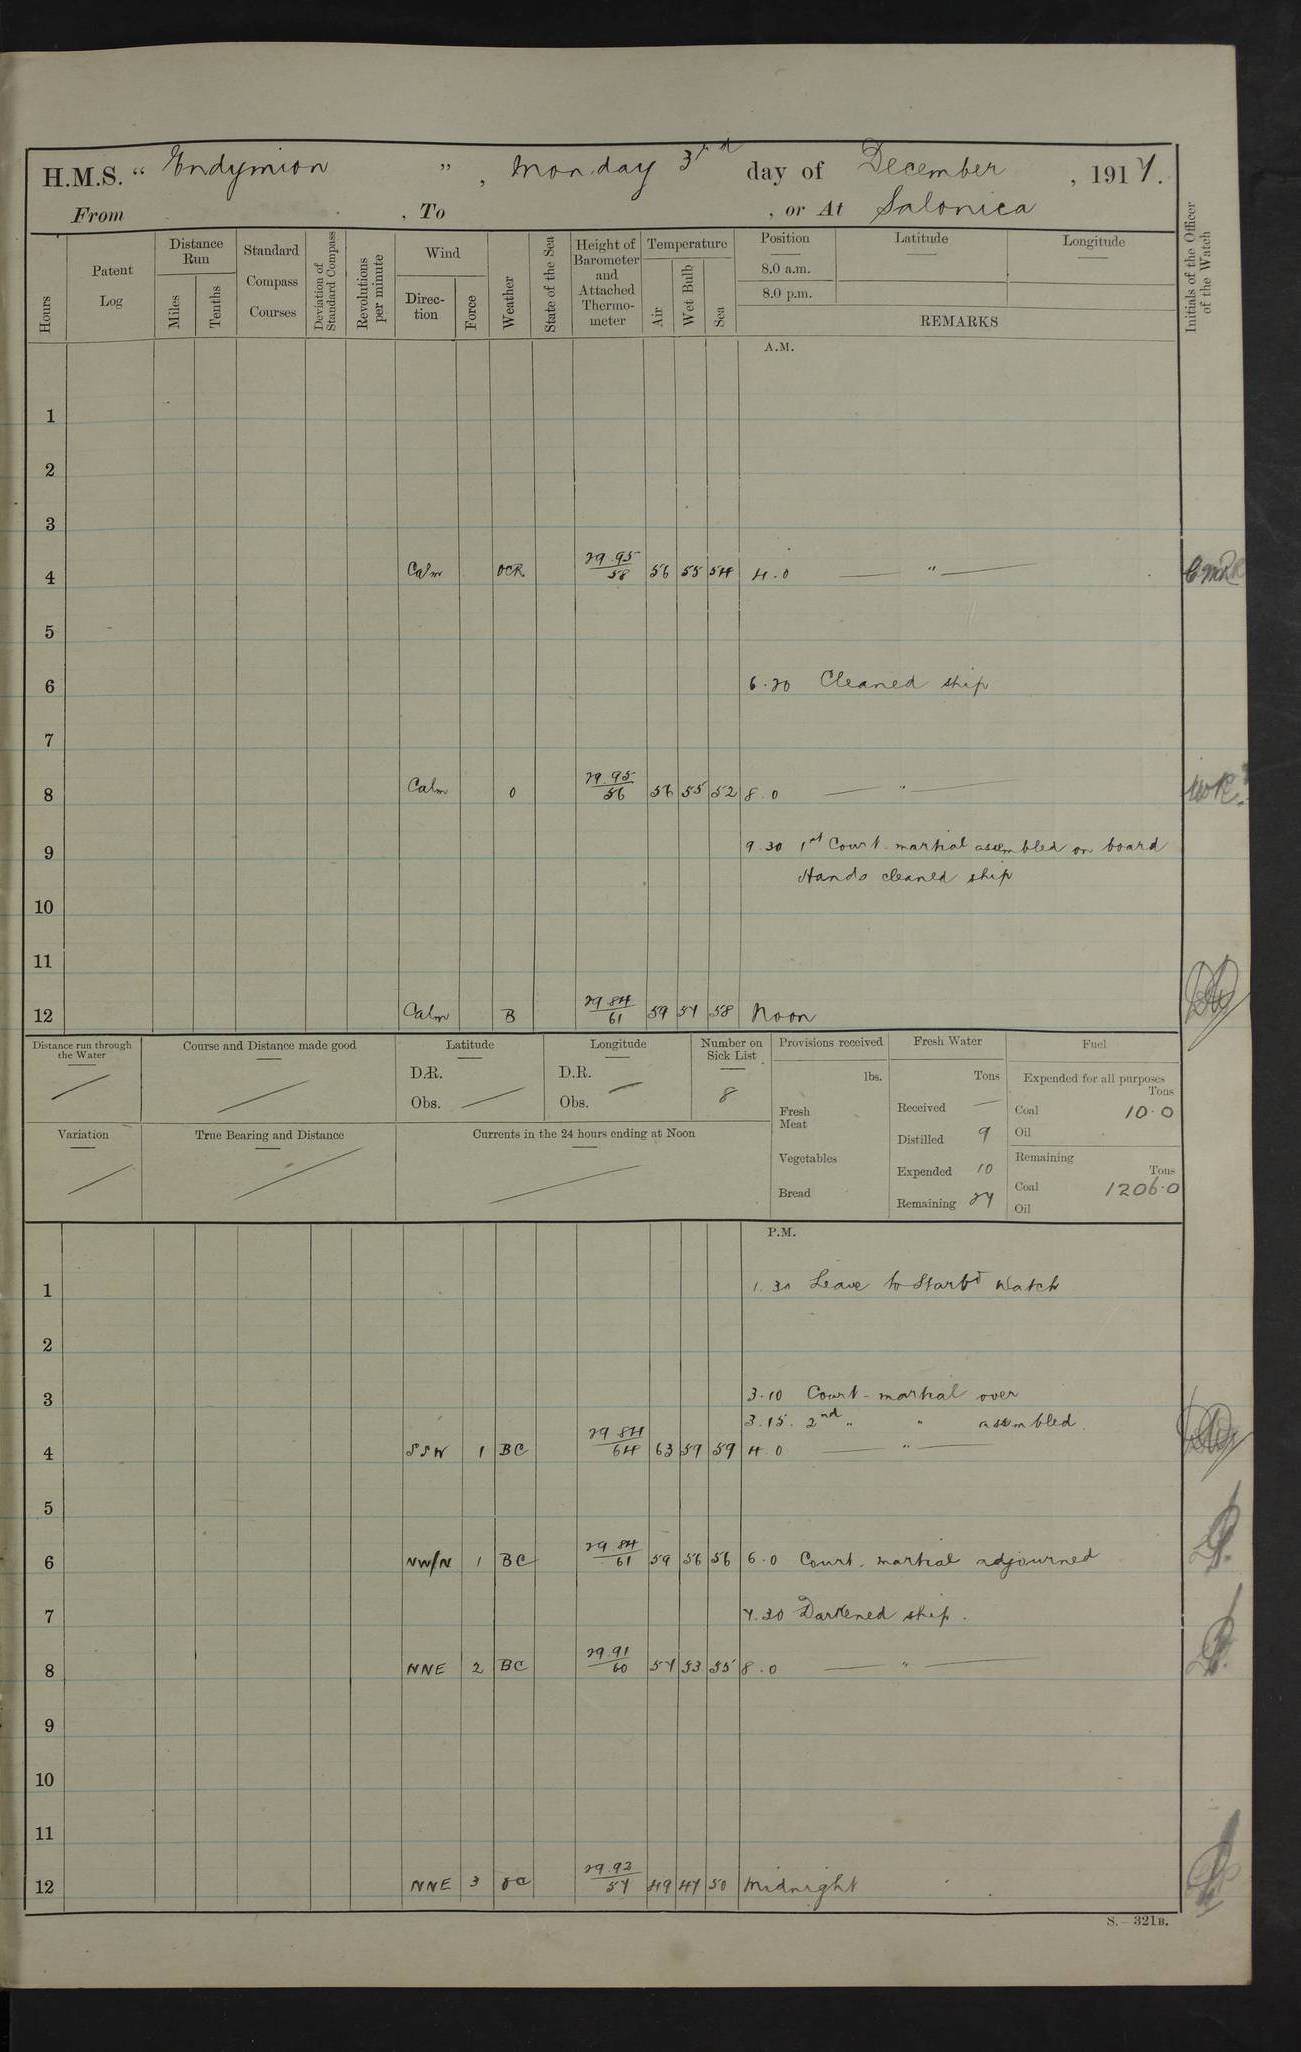 H.M.S. “ Endymion ” , Monday 3rd day of December , 1917.
From , To , or At Salonica
Hours
Patent Log
Distance Run
Miles
Tenths
Standard Compass Courses
Deviation of Standard Compass
Revolutions per minute
Wind
Direc-tion
Force
Weather
State of the Sea
Height of Barometer and Attached Thermo-meter
Temperature
Air
Wet Bulb
Sea
Position
8.0 a.m.
8.0 p.m.
Latitude
Longitude
REMARKS
Initials of the Officer of the Watch
A.M.
1
2
3
4 Calm OCR 29.95/58 56 55 54 4.0 — " —
5
6 6.20 Cleaned ship
7
8 Calm O 29.95/56 56 55 52 8.0 — " —
9 9.30 1st Court martial assembled on board
Hands cleaned ship
10
11
12 Calm B 29 84/61 59 57 58 Noon
Distance run through the Water
Course and Distance made good
Latitude
D.R.
Obs.
Longitude
D.R.
Obs.
Number on Sick List
8
Provisions received
lbs.
Fresh Meat
Vegetables
Bread
Fresh Water
Tons
Received —
Distilled 9
Expended 10
Remaining 27
Fuel
Expended for all purposes
Tons
Coal 10.0
Oil
Remaining
Tons
Coal 1206.0
Oil
Variation
True Bearing and Distance
Currents in the 24 hours ending at Noon
P.M.
1 1.30 Leave to Starbd Watch
2
3 3.10 Court-martial over
3.15. 2nd " " assembled.
4 SSW 1 BC 29 84/64 63 59 59 4.0 — " —
5
6 NW/N 1 BC 29 84/61 59 56 56 6.0 Court martial adjourned
7 7.30 Darkened ship.
8 NNE 2 BC 29.91/60 57 53 55 8.0 — " —
9
10
11
12 NNE 3 OC 29.92/57 49 47 50 Midnight
S.—321B.